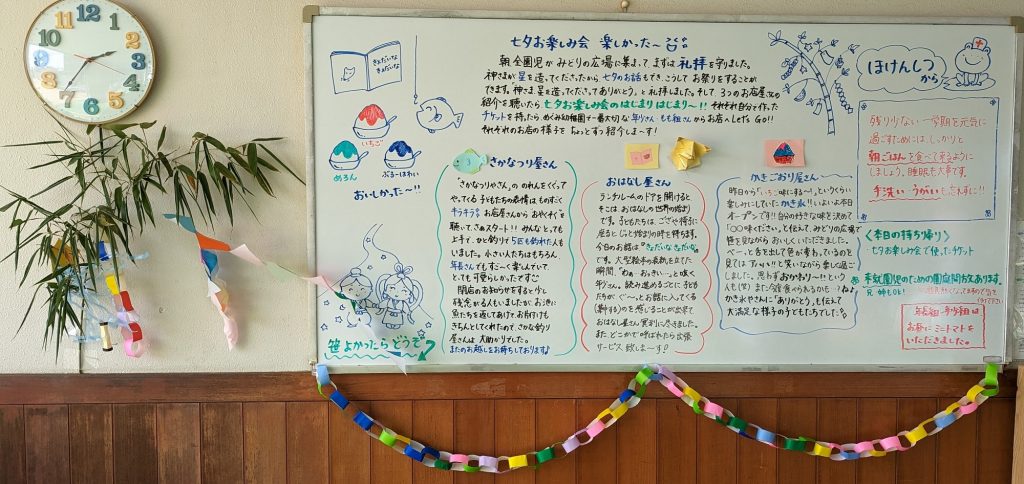 12
1
2
3
4
5
6
7
8
9
10
11
きょだいな
きょだいな
いちご
めろん
ぶるーはわい
おいしかった〜!!
七夕お楽しみ会 楽しかった〜
朝、全園児が みどりの広場に集まって まずは 礼拝を守りました。
神さまが 星を造ってくださったから 七夕のお話もでき、こうして お祭りをすることが
できます。神さま、星を造ってくださって ありがとう。と礼拝しました。そして、3つのお店屋さんの
紹介を聴いたら 七夕お楽しみ会のはじまり はじまり〜!! それぞれ自分で作った
チケットを持ったら、めぐみ幼稚園で一番大切な 年少さん・もも組さんからお店へ Let's Go!!
それぞれのお店の様子を ちょっとずつ紹介しま〜す!
さかなつり屋さん
"さかなつりやさん"の のれんをくぐって
やってくる 子どもたちの表情は ものすごく
キラキラ お店屋さんから おやくそくを
聴いて、さぁスタート!! みんな とっても
上手で、ひと釣りで 5匹も釣れた人も
いました。小さい人たちはもちろん
年長さんでも すご〜く 楽しんでいて
とっても 可愛らしかったです♡
閉店のお知らせをすると 少し
残念がる人もいましたが お池に
魚たちを返してあげて、お片付けも
きちんとしてくれたので、さかな釣り
屋さんは 大助かりでした。
またのお越しをお待ちしております♪
おはなし屋さん
ランチルームのドアを開けると
そこは、おはなしの世界の始まり
です。子どもたちは、ござや椅子に
座ると じっと始まりの時を待ちます。
今日のお話は『きょだいな きょだいな』
です。大型絵本の表紙を立てた
瞬間、「わぁ…おっきぃ…」と呟く
年少さん。読み進めるごとに 子ども
たちが ぐ〜っとお話に入ってくる
おはなし屋さん 冥利に尽きました。
また、どこかで 呼ばれたら 出張
サービス 致しま〜す!
かきごおり屋さん
昨日から「いちご味にする〜!」というくらい
楽しみにしていた かき氷!! いよいよ本日
オープンです!! 自分の好きな味を決めて
「〇〇味ください」と伝えて、みどりの広場で
笹を見ながら おいしくいただきました。
べ〜っと舌を出して 色が変わっているのを
見ては、「わぁ!!」と笑いながら 楽しく過ご
しました。思わず「おかわり〜!!」という
かき氷やさんに「ありがとう」も伝えて
大満足な様子の子どもたちでした。
ほけんしつ
から
残り少ない一学期を元気に
過ごすためには、しっかりと
朝ごはんを食べて来るように
しましょう。睡眠も大事です。
手洗い・うがいも忘れずに!!
〈本日の持ち帰り〉
七夕お楽しみ会で使ったチケット
未就園児のための園庭開放あります。
年長組・年少組は
お昼にミニトマトを
いただきました。
笹よかったら どうぞ